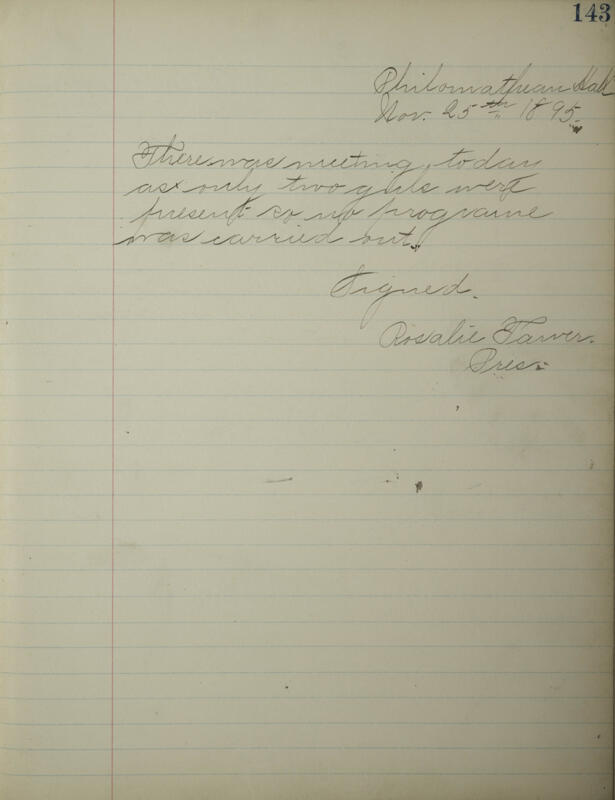 143
Philomathean Hall
Nov. 25th 1895.
There was meeting today
as only two girls were
present so no programe
was carried out.
Signed.
Rosalie Tarver.
Pres.